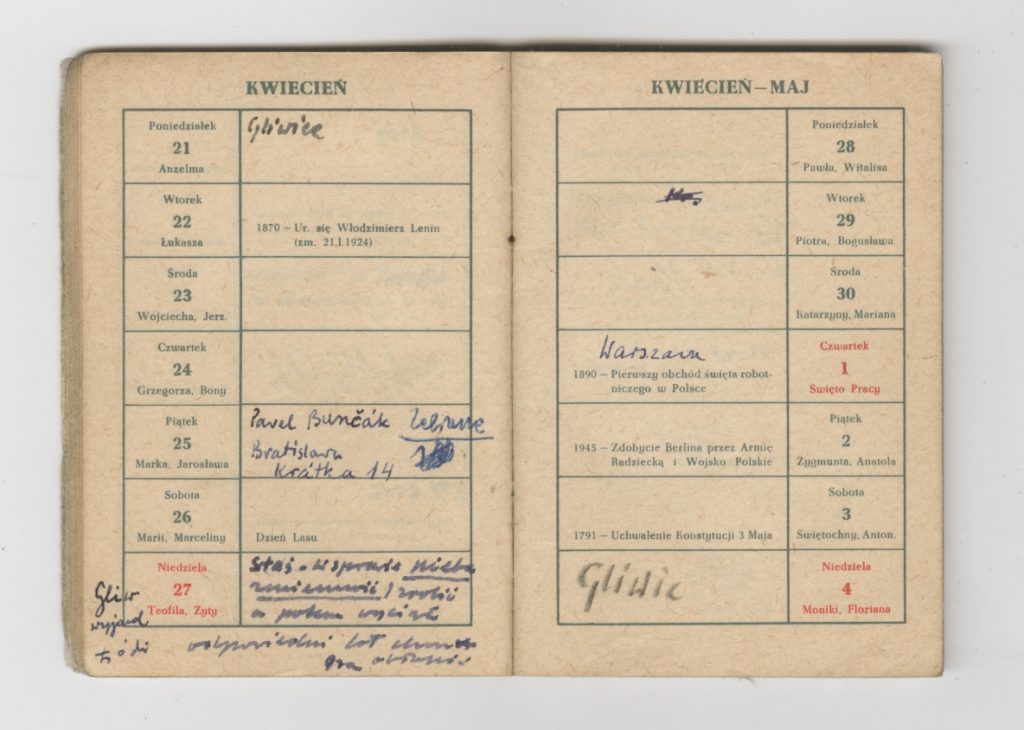 KWIECIEŃ
Poniedziałek
21
Anzelma
Gliwice
Wtorek
22
Łukasza
1870 – Ur. się Włodzimierz Lenin
(zm. 21.I.1924)
Środa
23
Wojciecha, Jerz.
Czwartek
24
Grzegorza, Bony
Piątek
25
Marka, Jarosława
Pavel Bunčák
Bratislava
Krátka 14
Sobota
26
Marii, Marceliny
Dzień Lasu
Niedziela
27
Teofila, Zyty
Staś - w sprawie
zrobić
a potem
Gliw
wyjazd
odpowiedni lot
KWIECIEŃ – MAJ
Poniedziałek
28
Pawła, Witalisa
Wtorek
29
Piotra, Bogusława
Środa
30
Katarzyny, Mariana
Warszawa
1890 – Pierwszy obchód święta robot-
niczego w Polsce
Czwartek
1
Święto Pracy
1945 – Zdobycie Berlina przez Armię
Radziecką i Wojsko Polskie
Piątek
2
Zygmunta, Anatola
1791 – Uchwalenie Konstytucji 3 Maja
Sobota
3
Świętochny, Anton.
Gliwic
Niedziela
4
Moniki, Floriana